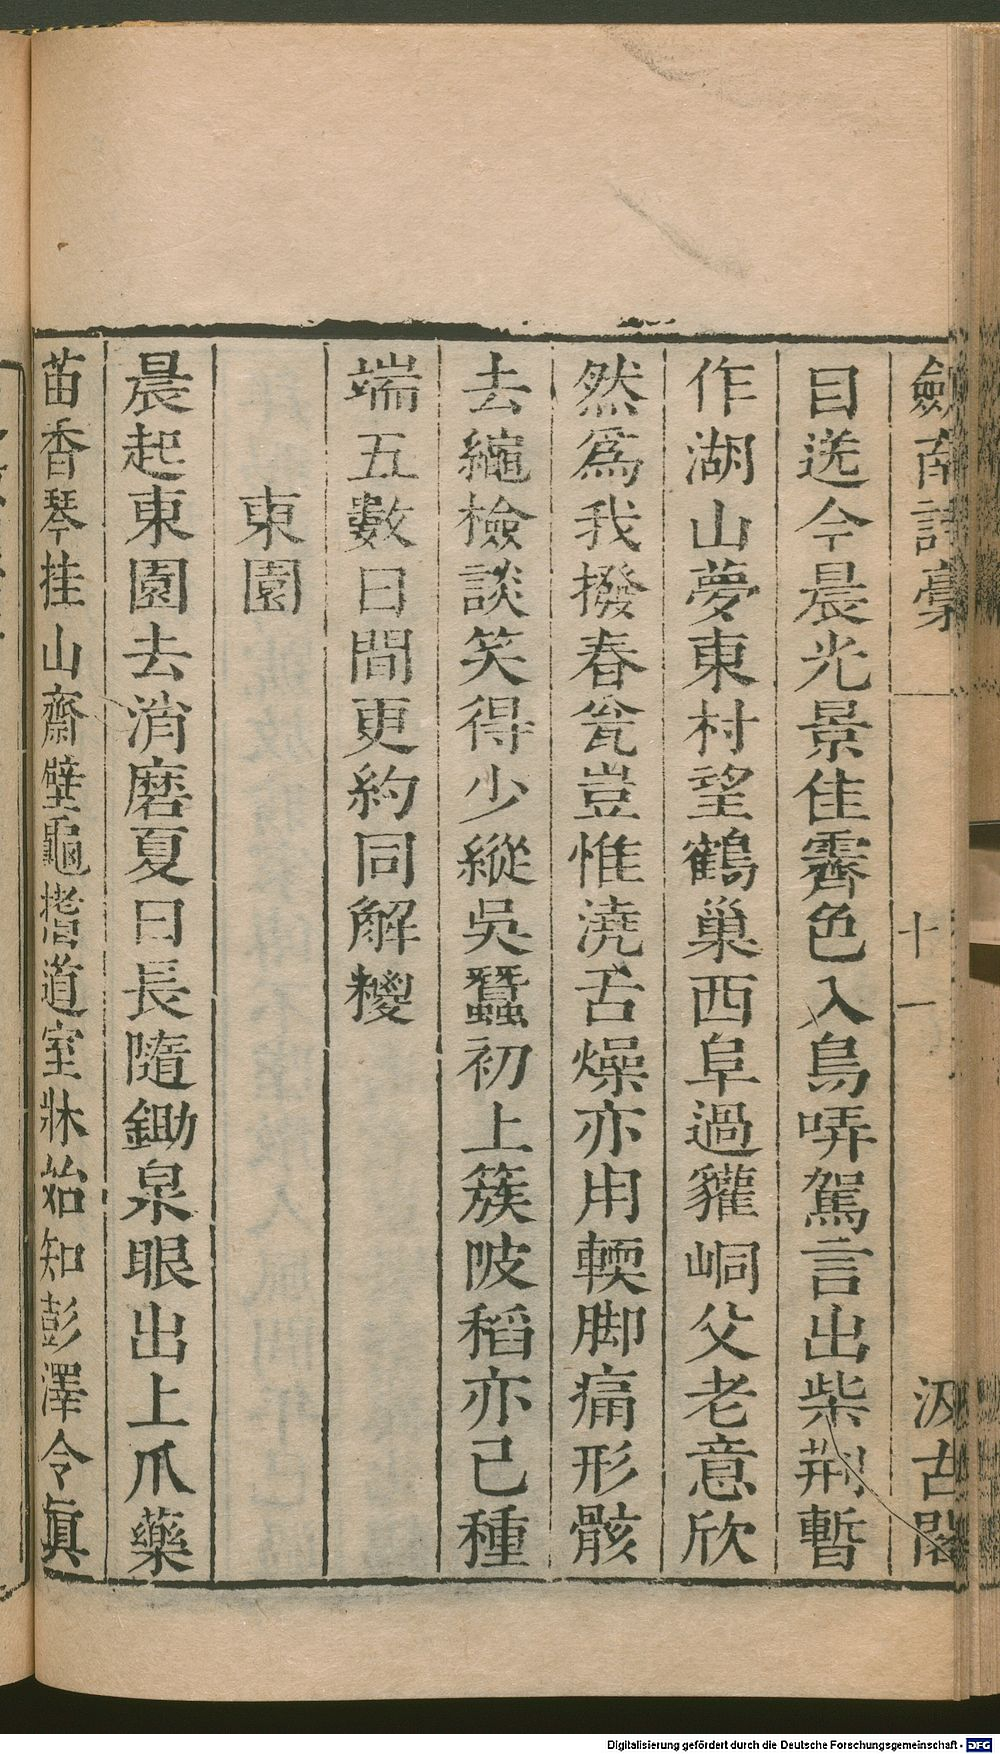 劍南詩稾 十一 汲古閣
目送今晨光景佳霽色入鳥哢駕言出柴荆暫
作湖山夢東村望鶴巢西阜過貛峒父老意欣
然爲我撥春瓮豈惟澆舌燥亦用輭脚痛形骸
去繩檢談笑得少縱吳蠶初上簇陂稻亦已種
端五數日間更約同解糉
東園
晨起東園去消磨夏日長隨鋤泉眼出上爪藥
苗香琴挂山齋壁龜搘道室牀始知彭澤令眞
Digitalisierung gefördert durch die Deutsche Forschungsgemeinschaft - DFG